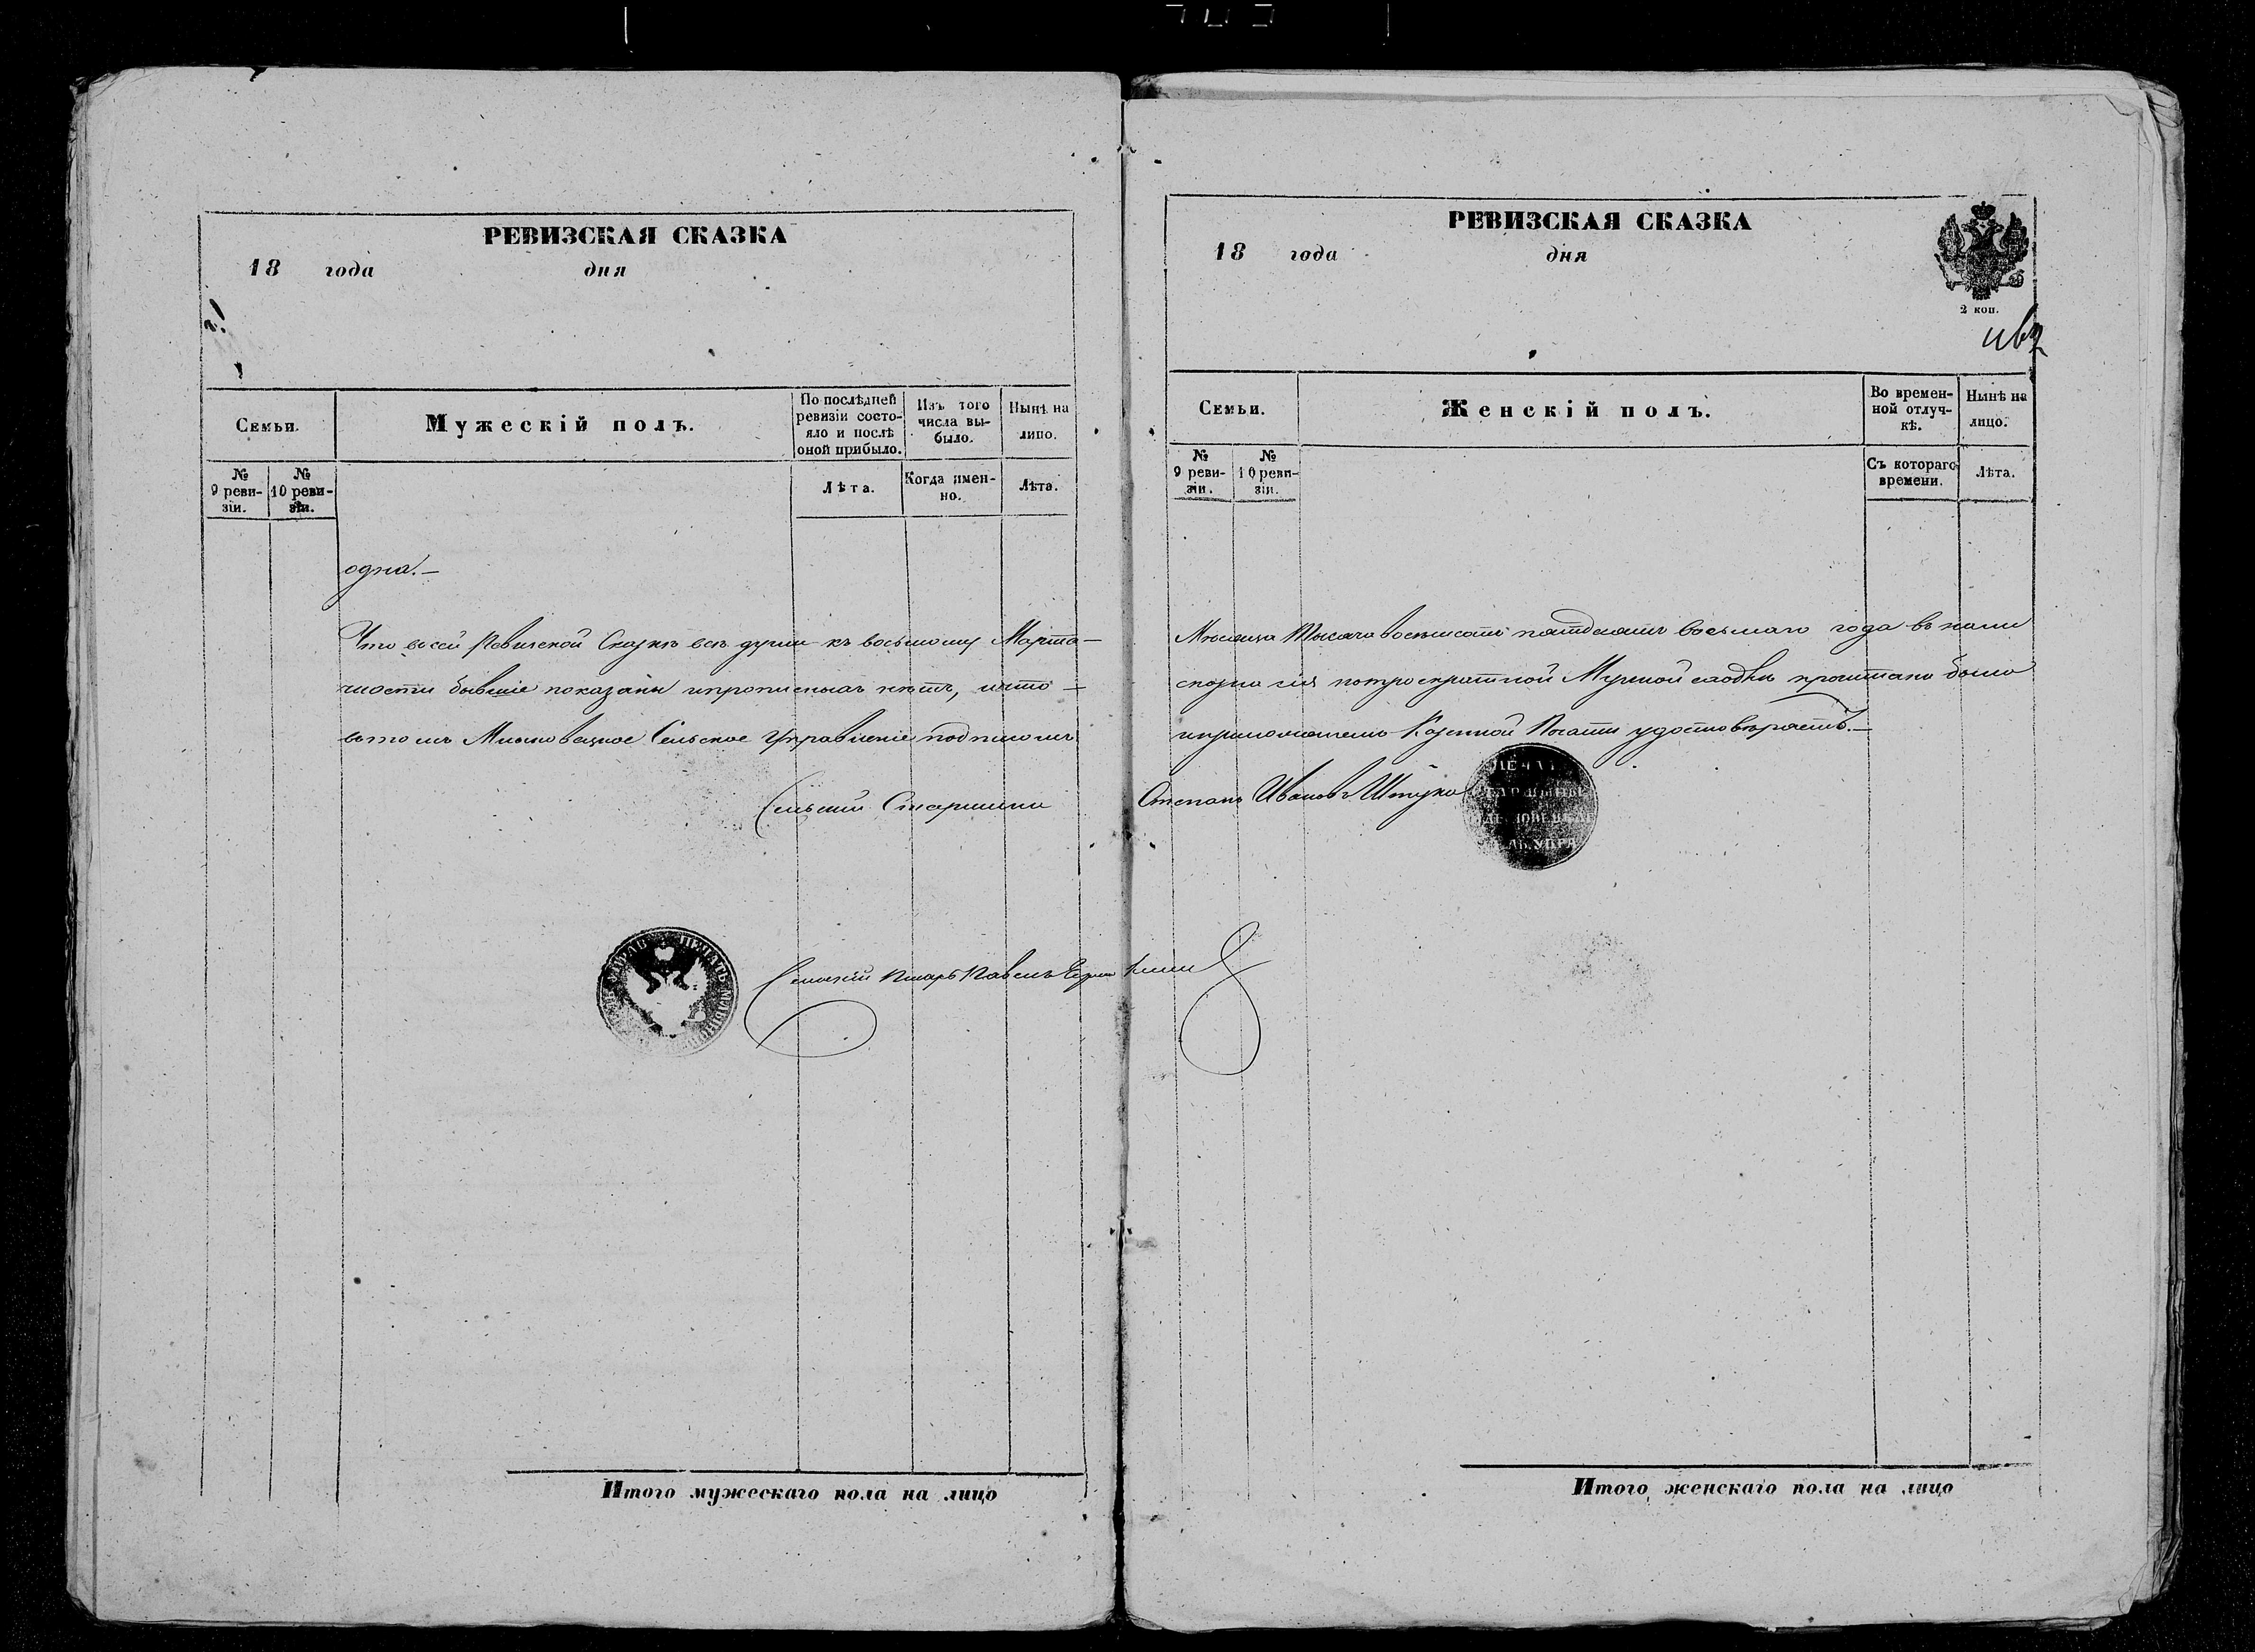 РЕВИЗСКАЯ СКАЗКА
18 года дня
Семьи.
Мужескій полъ.
По послѣдней ревизіи состо-
яло и послѣ оной прибыло.
Изъ того числа вы-
было.
Нынѣ на лицо.
№ 9 реви-
зіи.
№ 10 реви-
зіи.
Лѣта.
Когда имен-
но.
Лѣта.
одна.—
Что въ сей Ревизской Сказкѣ всѣ души къ восьмому Марта—
бывшіе показаны и прописныхъ нѣтъ, и что—
въ томъ Сельское Управленіе подписомъ
Сельскій Старшина
Сельскій Писарь Павелъ
ПЕЧАТЬ
Итого мужескаго пола на лицо
РЕВИЗСКАЯ СКАЗКА
18 года дня
2 коп.
Семьи.
Женскій полъ.
Во времен-
ной отлуч-
кѣ.
Нынѣ на лицо.
№ 9 реви-
зіи.
№ 10 реви-
зіи.
Съ котораго времени.
Лѣта.
Мѣсяца Тысяча восемьсотъ пятдесятъ восьмаго года въ
сія по троекратной прочитано было
Казенной Печати удостовѣряетъ.—
Степанъ Ивановъ
ПЕЧАТЬ
Итого женскаго пола на лицо